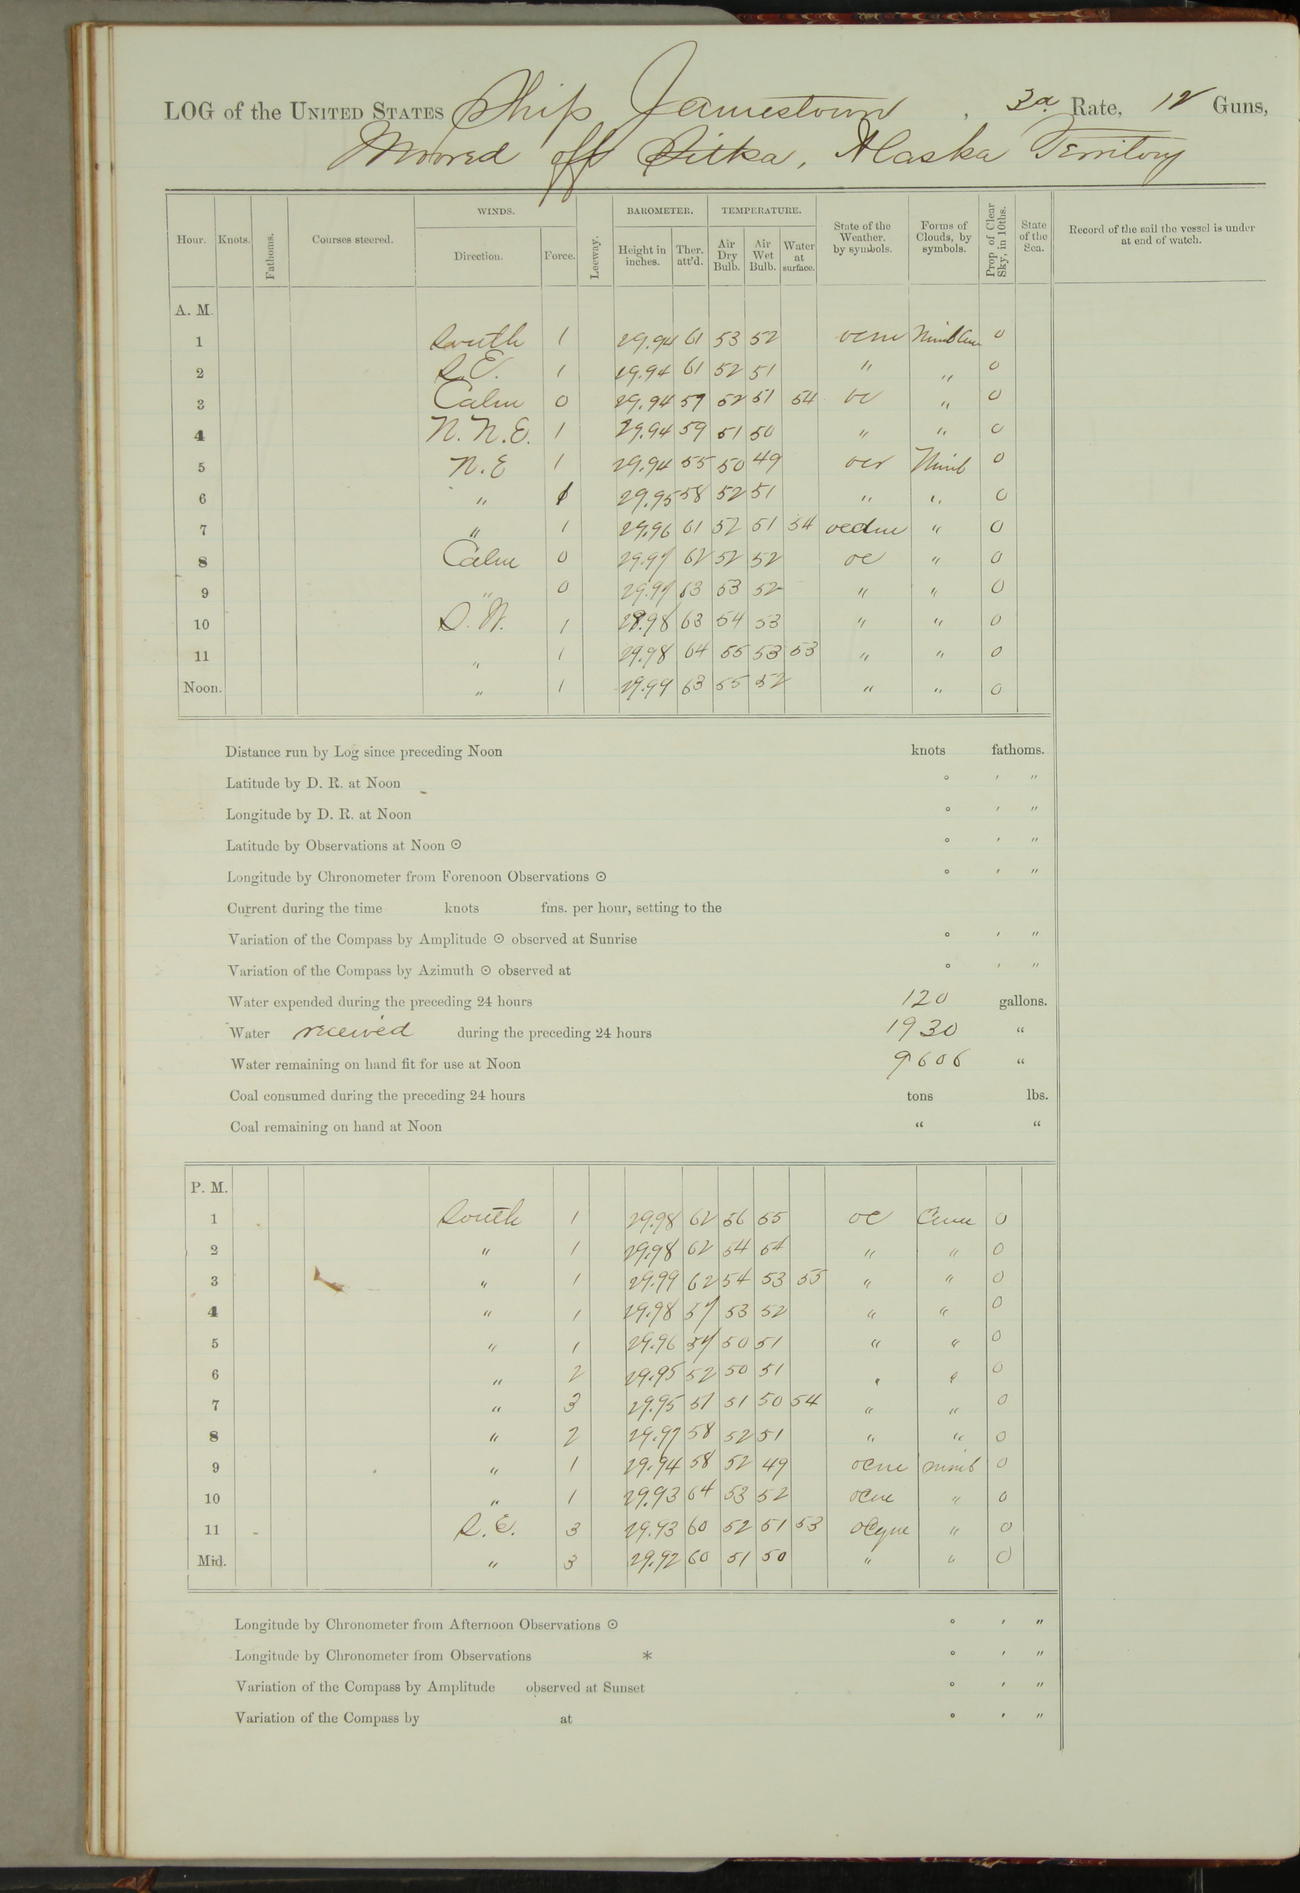 LOG of the UNITED STATES Ship Jamestown, 3d Rate, 12 Guns,
Moored off Sitka, Alaska Territory
Hour. Knots. Fathoms. Courses steered. WINDS. Direction. Force. Leeway. BAROMETER. Height in inches. Ther. att'd. TEMPERATURE. Air Dry Bulb. Air Wet Bulb. Water at surface. State of the Weather. by symbols. Forms of Clouds, by symbols. Prop. of Clear Sky, in 10ths. State of the Sea. Record of the sail the vessel is under at end of watch.
A. M.
1 South 1 29.94 61 53 52 ocm Nimb Cum 0
2 S.E. 1 29.94 61 52 51 " " 0
3 Calm 0 29.94 59 52 51 54 oc " 0
4 N.N.E. 1 29.94 59 51 50 " " 0
5 N.E 1 29.94 55 50 49 ocr Nimb 0
6 " 1 29.95 58 52 51 " " 0
7 " 1 29.96 61 52 51 54 ocdm " 0
8 Calm 0 29.97 62 52 52 oc " 0
9 " 0 29.97 63 53 52 " " 0
10 S.W. 1 29.98 63 54 53 " " 0
11 " 1 29.98 64 55 53 53 " " 0
Noon. " 1 29.99 63 55 52 " " 0
Distance run by Log since preceding Noon knots fathoms.
Latitude by D. R. at Noon ° ′ ″
Longitude by D. R. at Noon ° ′ ″
Latitude by Observations at Noon ☉ ° ′ ″
Longitude by Chronometer from Forenoon Observations ☉ ° ′ ″
Current during the time knots fms. per hour, setting to the
Variation of the Compass by Amplitude ☉ observed at Sunrise ° ′ ″
Variation of the Compass by Azimuth ☉ observed at ° ′ ″
Water expended during the preceding 24 hours 120 gallons.
Water received during the preceding 24 hours 1930 "
Water remaining on hand fit for use at Noon 9606 "
Coal consumed during the preceding 24 hours tons lbs.
Coal remaining on hand at Noon " "
P. M.
1 South 1 29.98 62 56 55 oc Cum 0
2 " 1 29.98 62 54 54 " " 0
3 " 1 29.99 62 54 53 55 " " 0
4 " 1 29.98 57 53 52 " " 0
5 " 1 29.96 54 50 51 " " 0
6 " 2 29.95 52 50 51 " " 0
7 " 3 29.95 51 51 50 54 " " 0
8 " 2 29.97 58 52 51 " " 0
9 " 1 29.94 58 52 49 ocm nimb 0
10 " 1 29.93 64 53 52 ocm " 0
11 S.E. 3 29.93 60 52 51 53 ocqm " 0
Mid. " 3 29.92 60 51 50 " " 0
Longitude by Chronometer from Afternoon Observations ☉ ° ′ ″
Longitude by Chronometer from Observations * ° ′ ″
Variation of the Compass by Amplitude observed at Sunset ° ′ ″
Variation of the Compass by at ° ′ ″